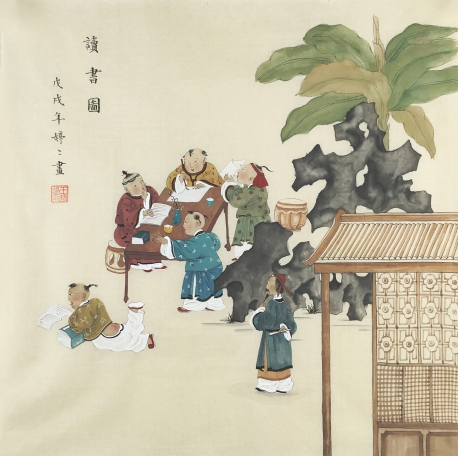 讀書圖
戊戌年婷之畫